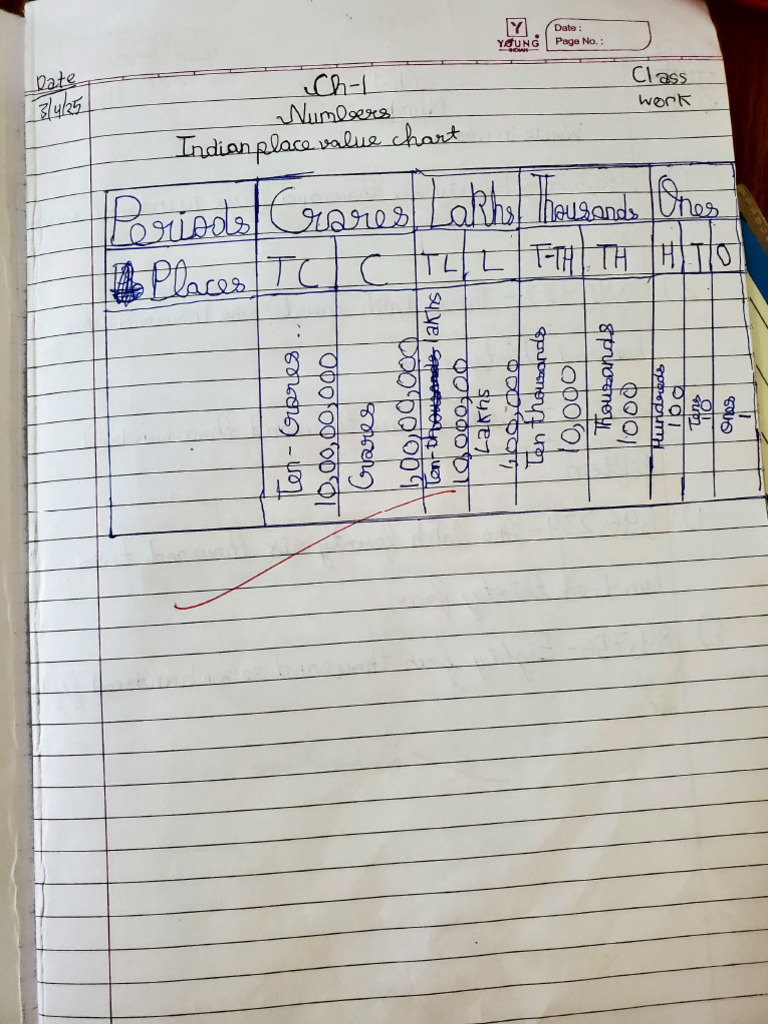 Y
YOUNG
INDIAN
Date :
Page No. :
Date
3/4/25
Ch-1
Class work
Numbers
Indian place value chart
Periods Crares Lakhs Thousands Ones
Places TC C TL L T-TH TH H T O
Ten-Crares...
10,00,00,000
Crares
1,00,00,000
Ten-thousands lakhs
10,000,00
Lakhs
1,00,000
Ten thousands
10,000
Thousands
1000
Hundreds
100
Tens
10
Ones
1